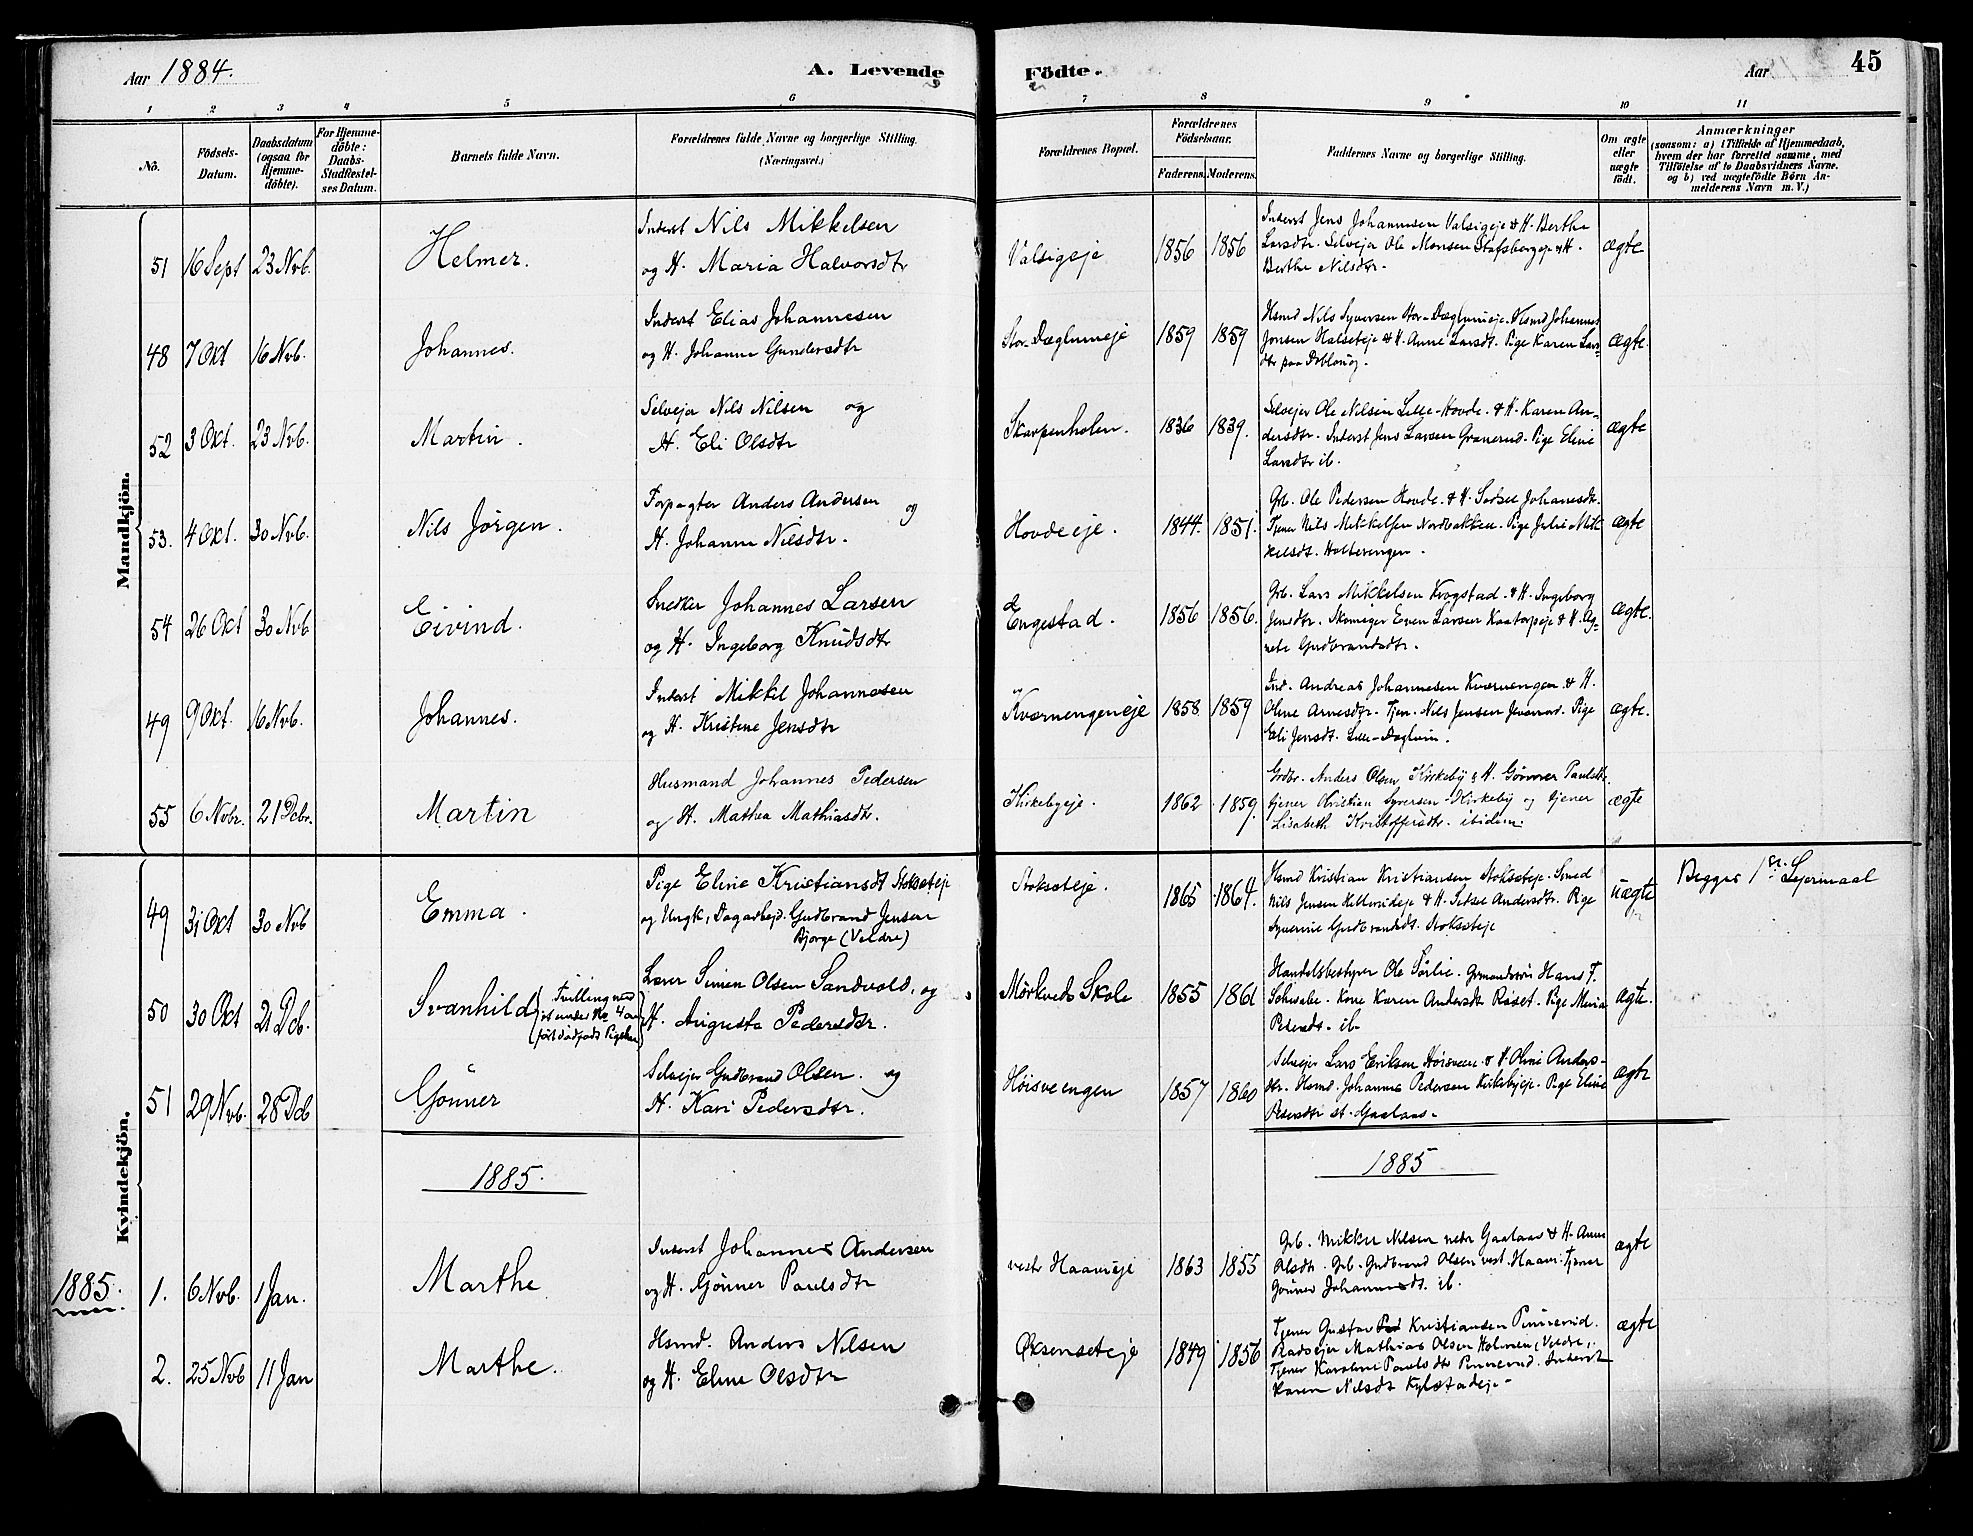 Aar 1884.
A. Levende Födte.
Aar
45
1 2 3 4 5 6 7 8 9 10 11
No.
Födsels-Datum.
Daabsdatum (ogsaa for Hjemme-döbte).
For Hjemme-döbte: Daabs-Stadfæstel-ses Datum.
Barnets fulde Navn.
Forældrenes fulde Navne og borgerlige Stilling. (Næringsvei.)
Forældrenes Bopæl.
Forældrenes Födselsaar.
Faderens. Moderens.
Faddernes Navne og borgerlige Stilling.
Om ægte eller uægte födt.
Anmærkninger
(saasom: a) i Tilfælde af Hjemmedaab,
hvem der har forrettet samme, med
Tilföielse af to Daabsvidners Navne,
og b) ved uægtefödte Börn An-
melderens Navn m. V.)
Mandkjön.
51 16 Sept 23 Nvb. Helmer.
Inderst Nils Mikkelsen
og H. Maria Halvorsdtr
Valsigeje 1856 1856
Inderst Jens Johannesen Valsigeje & H. Berthe
Larsdtr. Selvejer Ole Monsen Stafsbergeje & H.
Berthe Nilsdtr.
ægte
48 7 Okt 16 Nvb. Johannes.
Inderst Elias Johannesen
og H. Johanne Gundersdtr
Stor-Dæglumeje 1859 1859
Hsmd Nils Syversen Stor-Dæglumeje. Hsmd Johannes
Jensen Halseteje & H. Anne Larsdt. Pige Karen Lars-
dtr paa Dobloug.
ægte.
52 3 Okt. 23 Nvb. Martin.
Selvejer Nils Nilsen og
H. Eli Olsdtr
Skarpenholen. 1836 1839.
Selvejer Ole Nilsen Lille-Hovde. & H. Karen An-
dersdtr. Inderst Jens Larsen Granerud. Pige Eline
Larsdtr ib.
ægte
53. 4 Okt. 30 Nvb. Nils Jörgen.
Forpagter Anders Andersen og
H. Johanne Nilsdtr.
Hovdeeje. 1844. 1851.
Grb. Ole Pedersen Hovde. & H. Sidsel Johanesdt.
Tjener Nils Mikkelsen Nordbakken. Pige Julie Mik-
kelsdt. Holterengen.
ægte
54 26 Okt 30 Nvb Eivind.
Snedker Johannes Larsen
og H. Ingeborg Knudsdtr
Engestad. 1856 1856.
Grb. Lars Mikkelsen Krogstad. & H. Ingeborg
Jensdtr. Skomager Even Larsen Kaatorpeje & H. Ag-
nete Gudbrandsdtr.
ægte.
49 9 Okt. 16 Nvb. Johannes.
Inderst Mikkel Johannesen
og H. Kristine Jensdtr
Kværnengeneje 1858 1859
Ind. Andreas Johannesen Kværnengen & H.
Oline Arnesdtr. Tjen. Nils Jensen Jevanord. Pige
Eli Jensdt. Lille-Dæglum.
ægte.
55 6 Novbr. 21 Dcbr. Martin
Husmand Johannes Pedersen
og H. Mathea Mathiasdtr.
Kirkebyeje. 1862 1859.
Grdbr. Anders Olsen Kirkeby & H. Gönner Paulsdtr.
tjener Christian Syversen Kirkeby og tjener
Lisabeth Kristoffersdtr. ibidem.
ægte
Kvindekjön.
49 31 Okt 30 Nvb Emma.
Pige Eline Kristiansdt Stokseteje
og Ungk, Dagarbejd. Gudbrand Jensen
Bjorge (Veldre)
Stokseteje. 1865 1864.
Hsmd Kristian Kristiansen Stokseteje. Smed
Nils Jensen & H. Sidsel Andersdtr. Pige
Syverine Gudbrandsdt. Stokseteje
uægte
Begges 1ste Lejermaal
50 30 Okt 21 Dcb. Svanhild (Tvilling med
et under No 4 an-
fört dödfödt Pigebarn)
Lærer Simen Olsen Sandvold, og
H. Augusta Pedersdtr.
Mörkveds Skole 1855 1861
Handelsbestyrer Ole Sörlie. Grmandssön Hans T.
Schwabe. Kone Karen Andersdt Röset. Pige Maria
Pedersdt. ib.
ægte.
51 29 Nvb. 28 Dcb Gönner
Selvejer Gudbrand Olsen. og
H. Kari Pedersdtr.
Höisveengen 1857 1860
Selvejer Lars Eriksen Höisveen & H. Oline Anders-
dtr. Hsmd. Johannes Pedersen Kirkebyeje. Pige Eline
Pedersdtr st. Gaalaas.
ægte
1885.
1885
1885.
1. 6 Nvb. 1 Jan. Marthe
Inderst Johannes Andersen
og H. Gönner Paulsdtr
vestr Haaveeje 1863 1855
Grb. Mikkel Nilsen nedr Gaalaas & H. Anne
Olsdtr. Grb. Gudbrand Olsen vest. Haave. Tjener
Gönner Johannesdt. ib.
ægte
2. 25 Nvb 11 Jan Marthe.
Hsmd. Anders Nilsen
og H. Eline Olsdtr
Öksenseteje 1849 1856
Tjener Gustav Kristiansen Pinnerud.
Pladsejer Mathias Olsen Holmen (Veldre).
Tjener Karoline Paulsdtr Pinnerud. Inderst
Karen Nilsdt Kylstadeje.
ægte